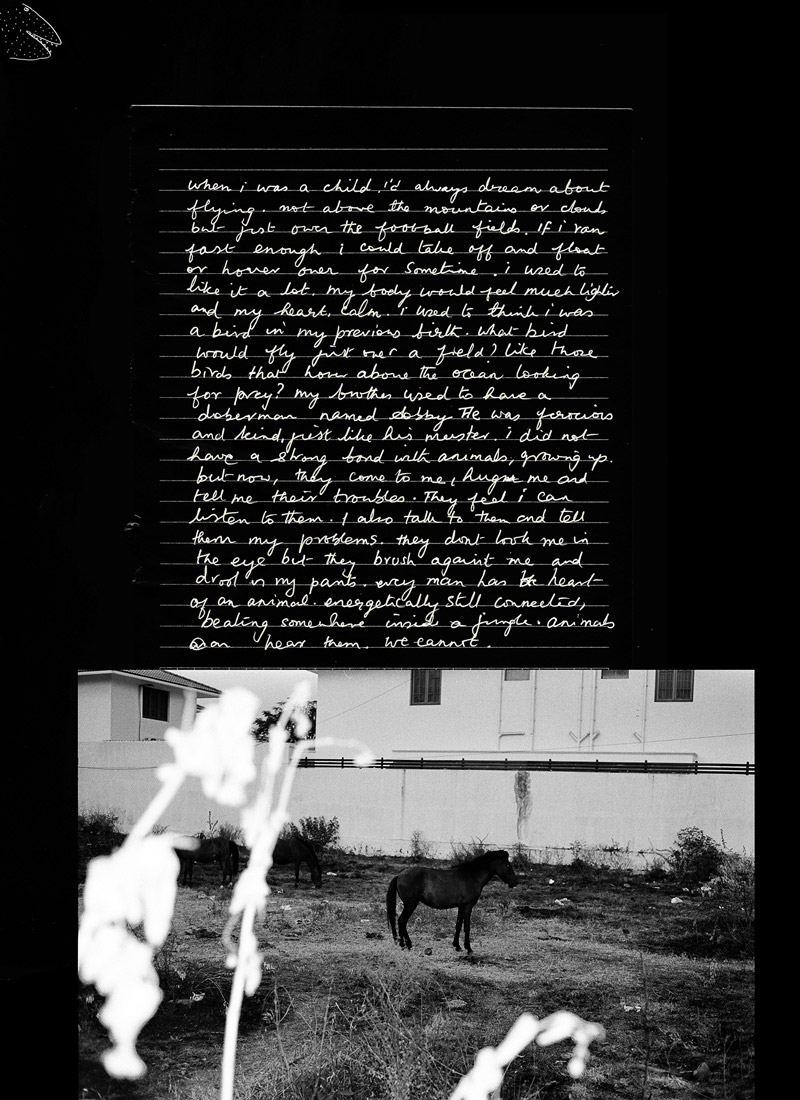 when i was a child, i'd always dream about
flying. not above the mountains or clouds
but just over the football fields. If i ran
fast enough i could take off and float
or hover over for sometime. i used to
like it a lot. my body would feel much lighter
and my heart, calm. i used to think i was
a bird in my previous birth. what bird
would fly just over a field? like those
birds that hover above the ocean looking
for prey? my brother used to have a
doberman named He was ferocious
and kind, just like his master. i did not
have a strong bond with animals, growing up.
but now, they come to me, hug me and
tell me their troubles. They feel i can
listen to them. I also talk to them and tell
them my problems. they dont look me in
the eye but they brush against me and
drool on my pants. every man has heart
of an animal. energetically still connected,
beating somewhere inside a jungle. animals
can hear them. We cannot.